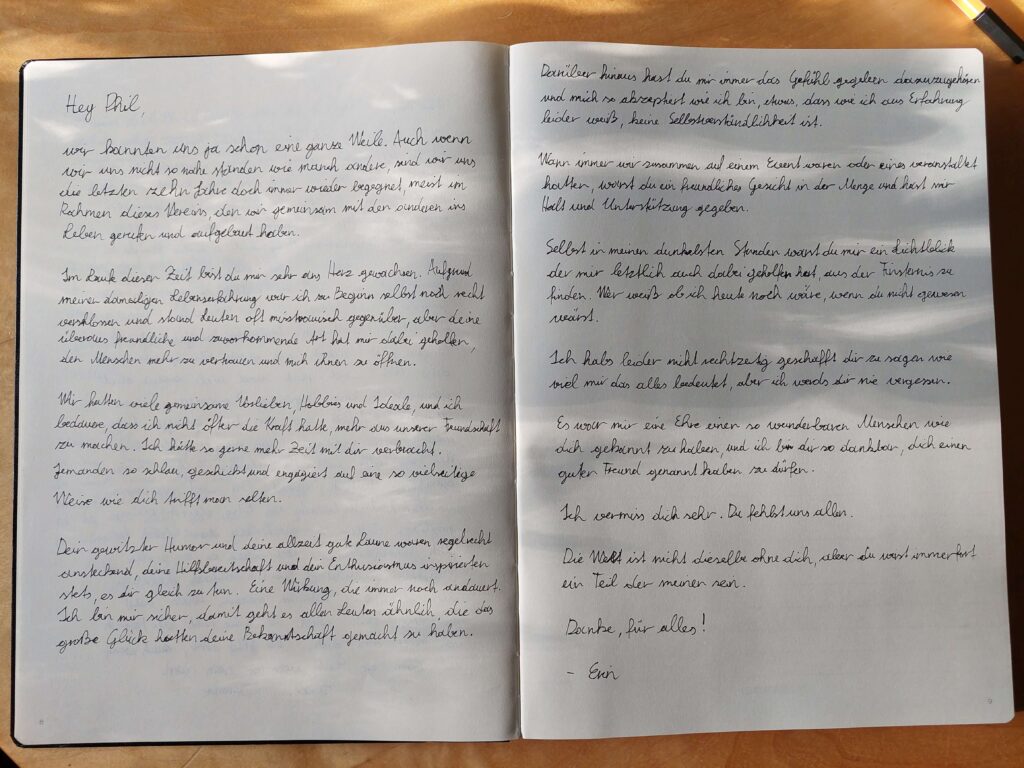 Hey Phil,
wir kannten uns ja schon eine ganze Weile. Auch wenn
wir uns nicht so nahe standen wie manch andere, sind wir uns
die letzten zehn Jahre doch immer wieder begegnet, meist im
Rahmen dieses Vereins, den wir gemeinsam mit den anderen ins
Leben gerufen und aufgebaut haben.
Im Laufe dieser Zeit bist du mir sehr ans Herz gewachsen. Aufgrund
meiner damaligen Lebenserfahrung war ich zu Beginn selbst noch recht
verschlossen und stand Leuten oft misstrauisch gegenüber, aber deine
überaus freundliche und zuvorkommende Art hat mir dabei geholfen,
den Menschen mehr zu vertrauen und mich ihnen zu öffnen.
Wir hatten viele gemeinsame Vorlieben, Hobbies und Ideale, und ich
bedauere, dass ich nicht öfter die Kraft hatte, mehr aus unserer Freundschaft
zu machen. Ich hätte so gerne mehr Zeit mit dir verbracht.
Jemanden so schlau, geschickt und engagiert auf eine so vielseitige
Weise wie dich trifft man selten.
Dein gewitzter Humor und deine allzeit gute Laune waren regelrecht
ansteckend, deine Hilfsbereitschaft und dein Enthusiasmus inspirierten
stets, es dir gleich zu tun. Eine Wirkung, die immer noch andauert.
Ich bin mir sicher, damit geht es allen Leuten ähnlich, die das
große Glück hatten deine Bekanntschaft gemacht zu haben.
8
Darüber hinaus hast du mir immer das Gefühl gegeben dazuzugehören
und mich so akzeptiert wie ich bin, etwas, dass wie ich aus Erfahrung
leider weiß, keine Selbstverständlichkeit ist.
Wann immer wir zusammen auf einem Event waren oder eines veranstaltet
hatten, warst du ein freundliches Gesicht in der Menge und hast mir
Halt und Unterstützung gegeben.
Selbst in meinen dunkelsten Stunden warst du mir ein Lichtblick
der mir letztlich auch dabei geholfen hat, aus der Finsternis zu
finden. Wer weiß ob ich heute noch wäre, wenn du nicht gewesen
wärst.
Ich habs leider nicht rechtzeitig geschafft dir zu sagen wie
viel mir das alles bedeutet, aber ich werds dir nie vergessen.
Es war mir eine Ehre einen so wunderbaren Menschen wie
dich gekannt zu haben, und ich bin dir so dankbar, dich einen
guten Freund genannt haben zu dürfen.
Ich vermiss dich sehr. Du fehlst uns allen.
Die Welt ist nicht dieselbe ohne dich, aber du wirst immerfort
ein Teil der meinen sein.
Danke, für alles!
- Erin
9